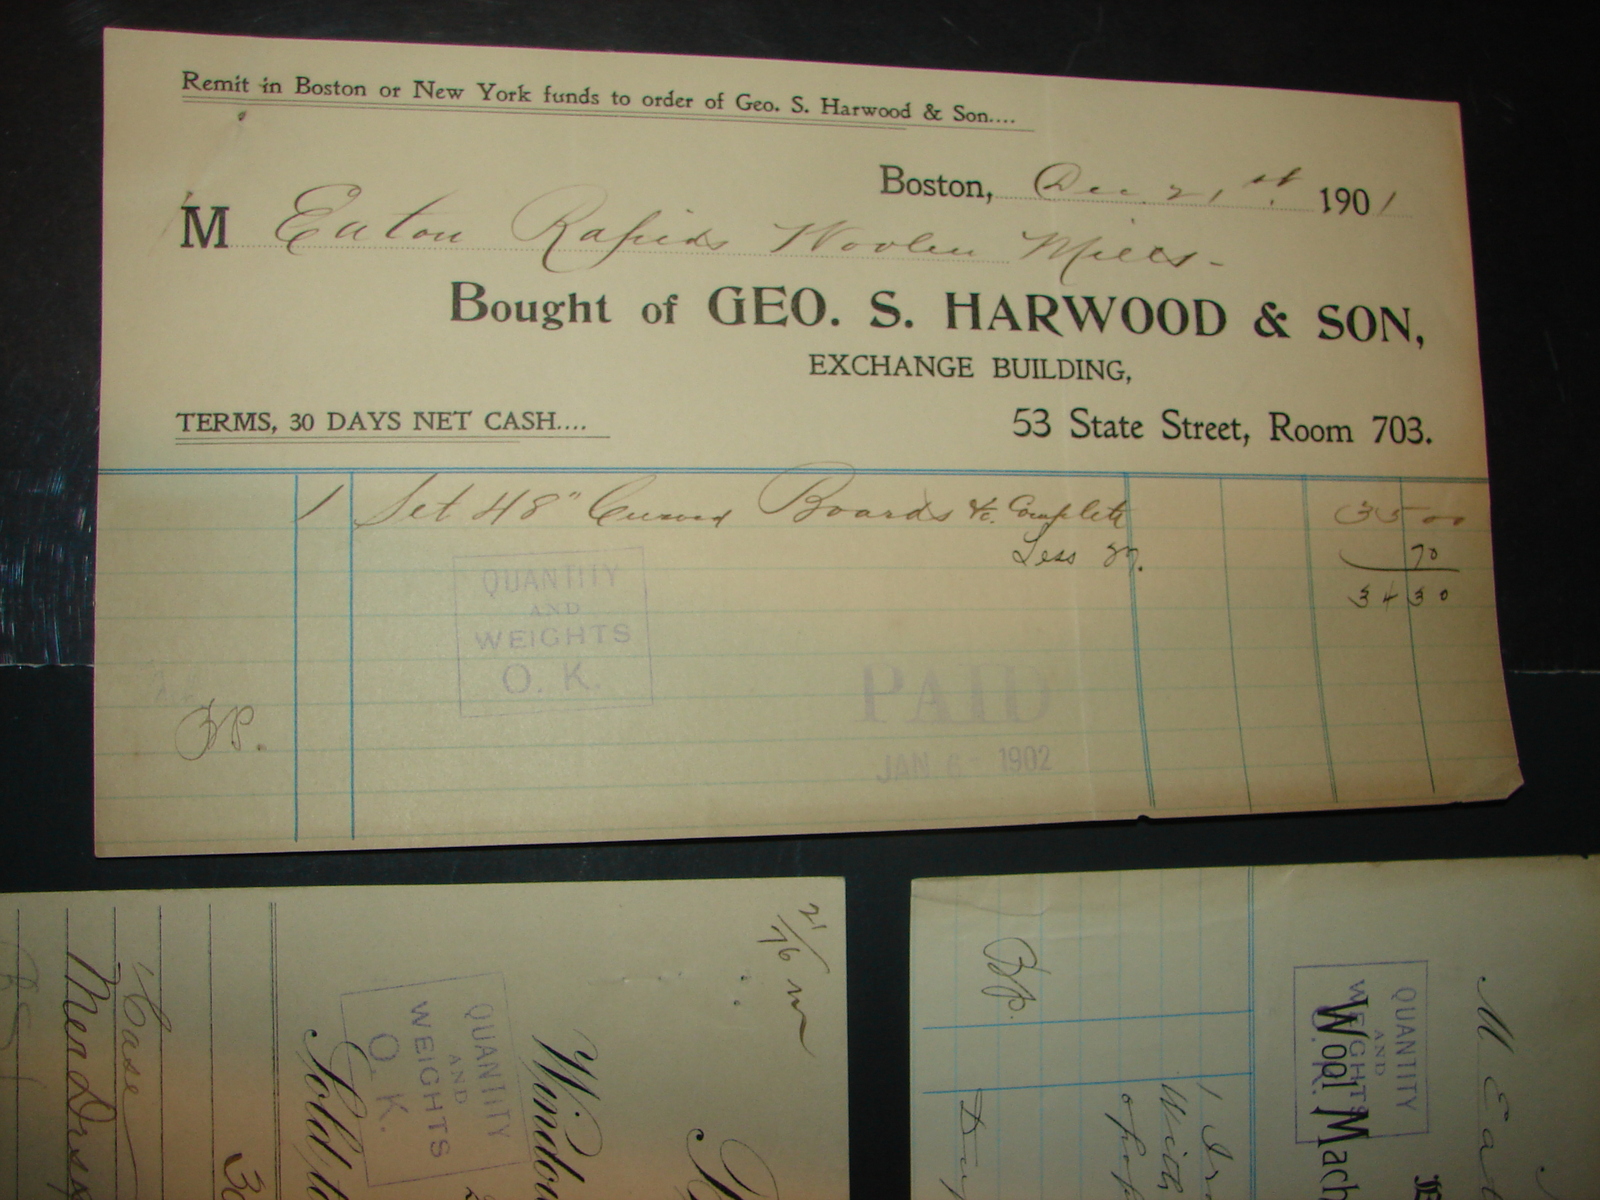 Remit in Boston or New York funds to order of Geo. S. Harwood & Son....
Boston, Dec. 21st. 1901
M Eaton Rapids Woolen Mills-
Bought of GEO. S. HARWOOD & SON,
EXCHANGE BUILDING,
TERMS, 30 DAYS NET CASH....
53 State Street, Room 703.
1 Set 48" Curved Boards &c. Complete 35 00
Less 2%. 70
34 30
QUANTITY
AND
WEIGHTS
O. K.
PAID
JAN 6- 1902
BP.
21
76
Case
Sold to
Window
QUANTITY
AND
WEIGHTS
O. K.
BP.
QUANTITY
AND
WEIGHTS
O.K.
Wool Mach
M Eat
1
With